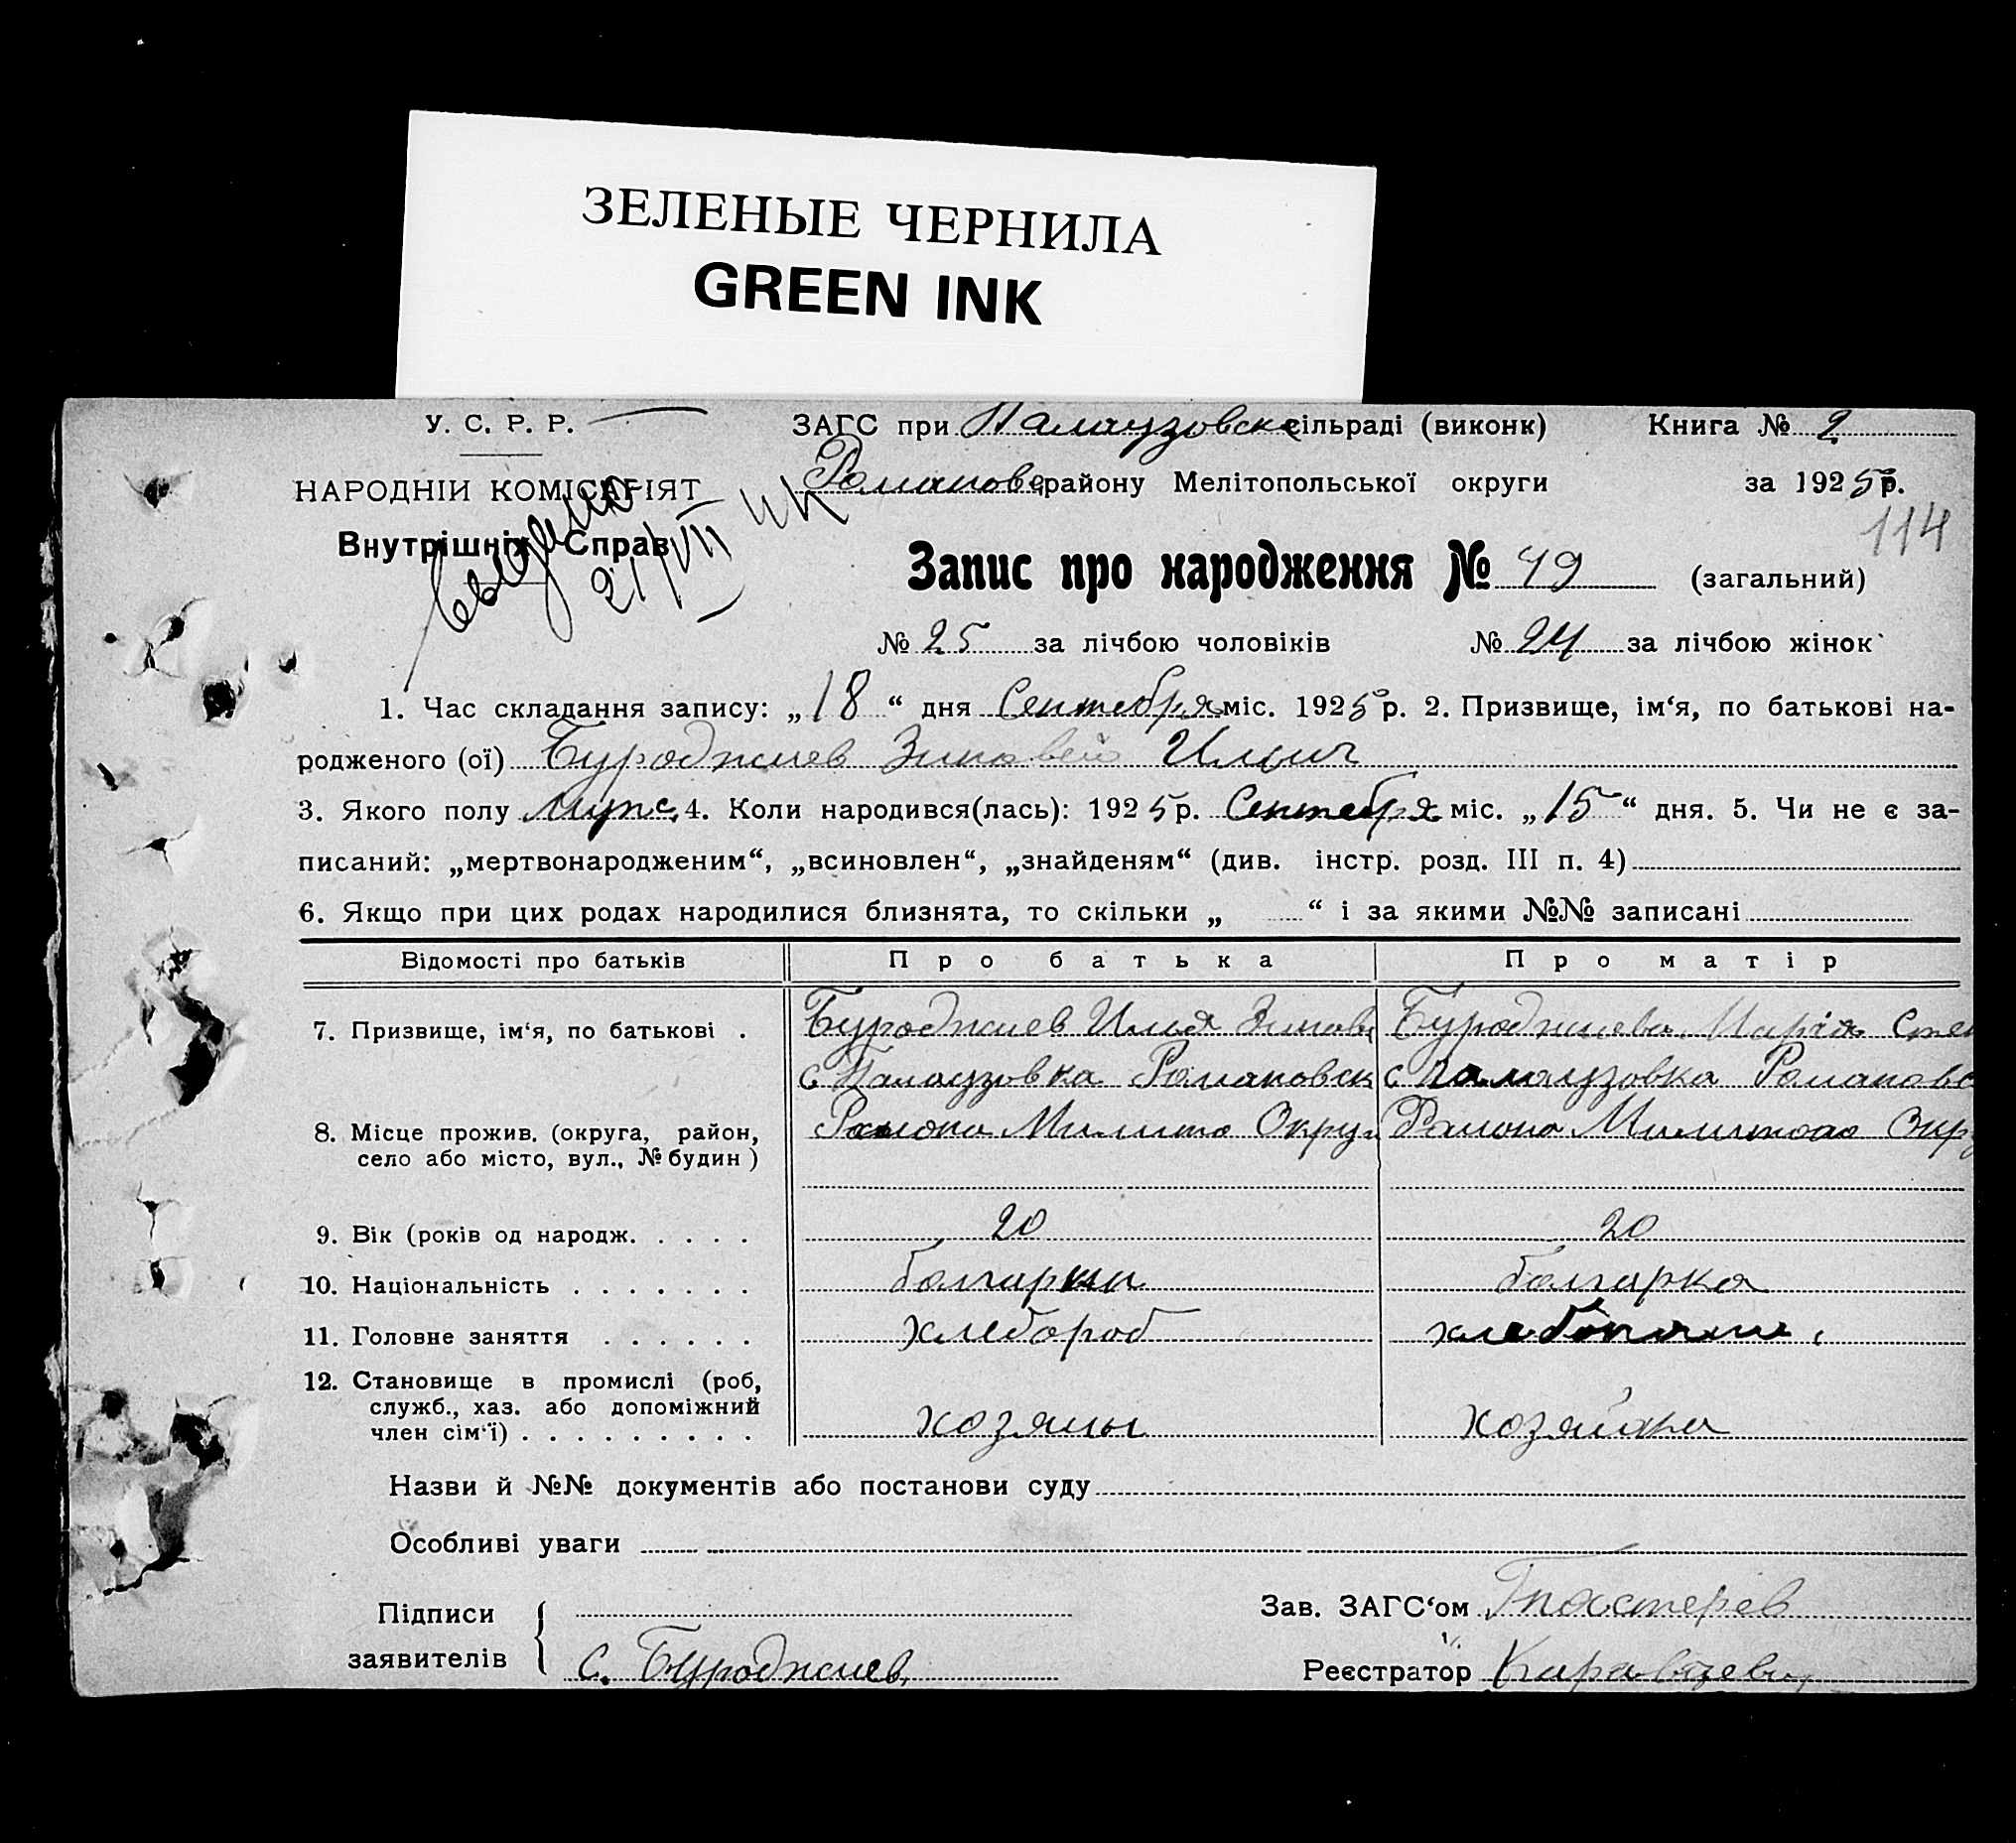 ЗЕЛЕНЫЕ ЧЕРНИЛА
GREEN INK
У. С. Р. Р.
ЗАГС при Палаузовск сільраді (виконк)
Книга № 2
НАРОДНІЙ КОМІСАРІЯТ
Романовс району Мелітопольської округи
за 1925 р.
114
Внутрішніх Справ
21/VII
Запис про народження № 49 (загальний)
№ 25 за лічбою чоловіків № 24 за лічбою жінок
1. Час складання запису: „18“ дня Сентября міс. 1925 р. 2. Призвище, ім‘я, по батькові на-
родженого (ої) Буроджиев Зиновей Ильич
3. Якого полу мужс. 4. Коли народився(лась): 1925 р. Сентебря міс. „15“ дня. 5. Чи не є за-
писаний: „мертвонародженим“, „всиновлен“, „знайденям“ (див. інстр. розд. III п. 4)
6. Якщо при цих родах народилися близнята, то скільки „ “ і за якими №№ записані
Відомості про батьків
Про батька
Про матір
7. Призвище, ім‘я, по батькові .
Буроджиев Илья Зинов
Буроджиева Марія Степ
с Палаузовка Романовск
с Палаузовка Романовс
8. Місце прожив. (округа, район,
село або місто, вул., № будин)
Района Милито Окру
Района Милито Окр
9. Вік (років од народж. . . . .
20
20
10. Національність . . . . . . .
болгарин
болгарка
11. Головне заняття . . . . . .
хлебороб
12. Становище в промислі (роб,
служб., хаз. або допоміжний
член сім‘ї) . . . . . . . . .
хозяины
хозяйка
Назви й №№ документів або постанови суду
Особливі уваги
Підписи
заявителів
С. Буроджиев
Зав. ЗАГС‘ом
Реєстратор